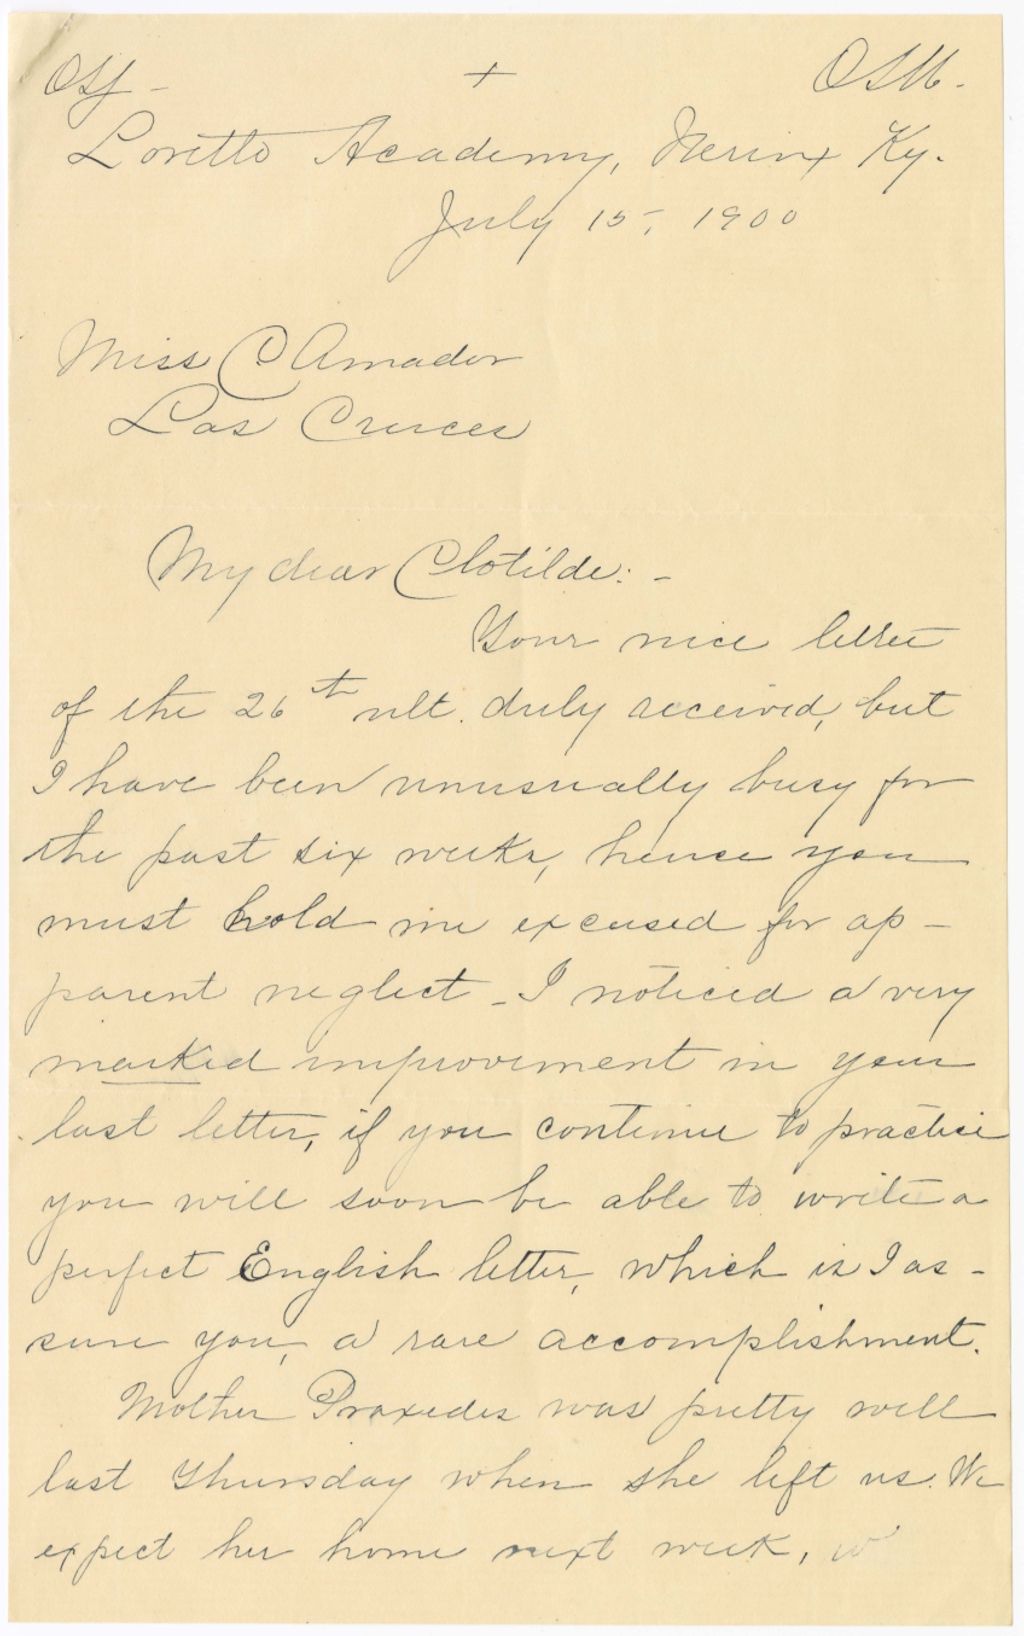 OSJ - + OSM.
Loretto Academy, Nerinx Ky.
July 15, 1900
Miss C Amador
Las Cruces
My dear Clotilde: -
Your nice letter
of the 26th ult. duly received, but
I have been unusually busy for
the past six weeks, hence you
must hold me excused for ap-
parent neglect - I noticed a very
marked improvement in your
last letter, if you continue to practice
you will soon be able to write a
perfect English letter, which is I as-
sure you, a rare accomplishment.
Mother Praxedes was pretty well
last Thursday when she left us. We
expect her home next week, w